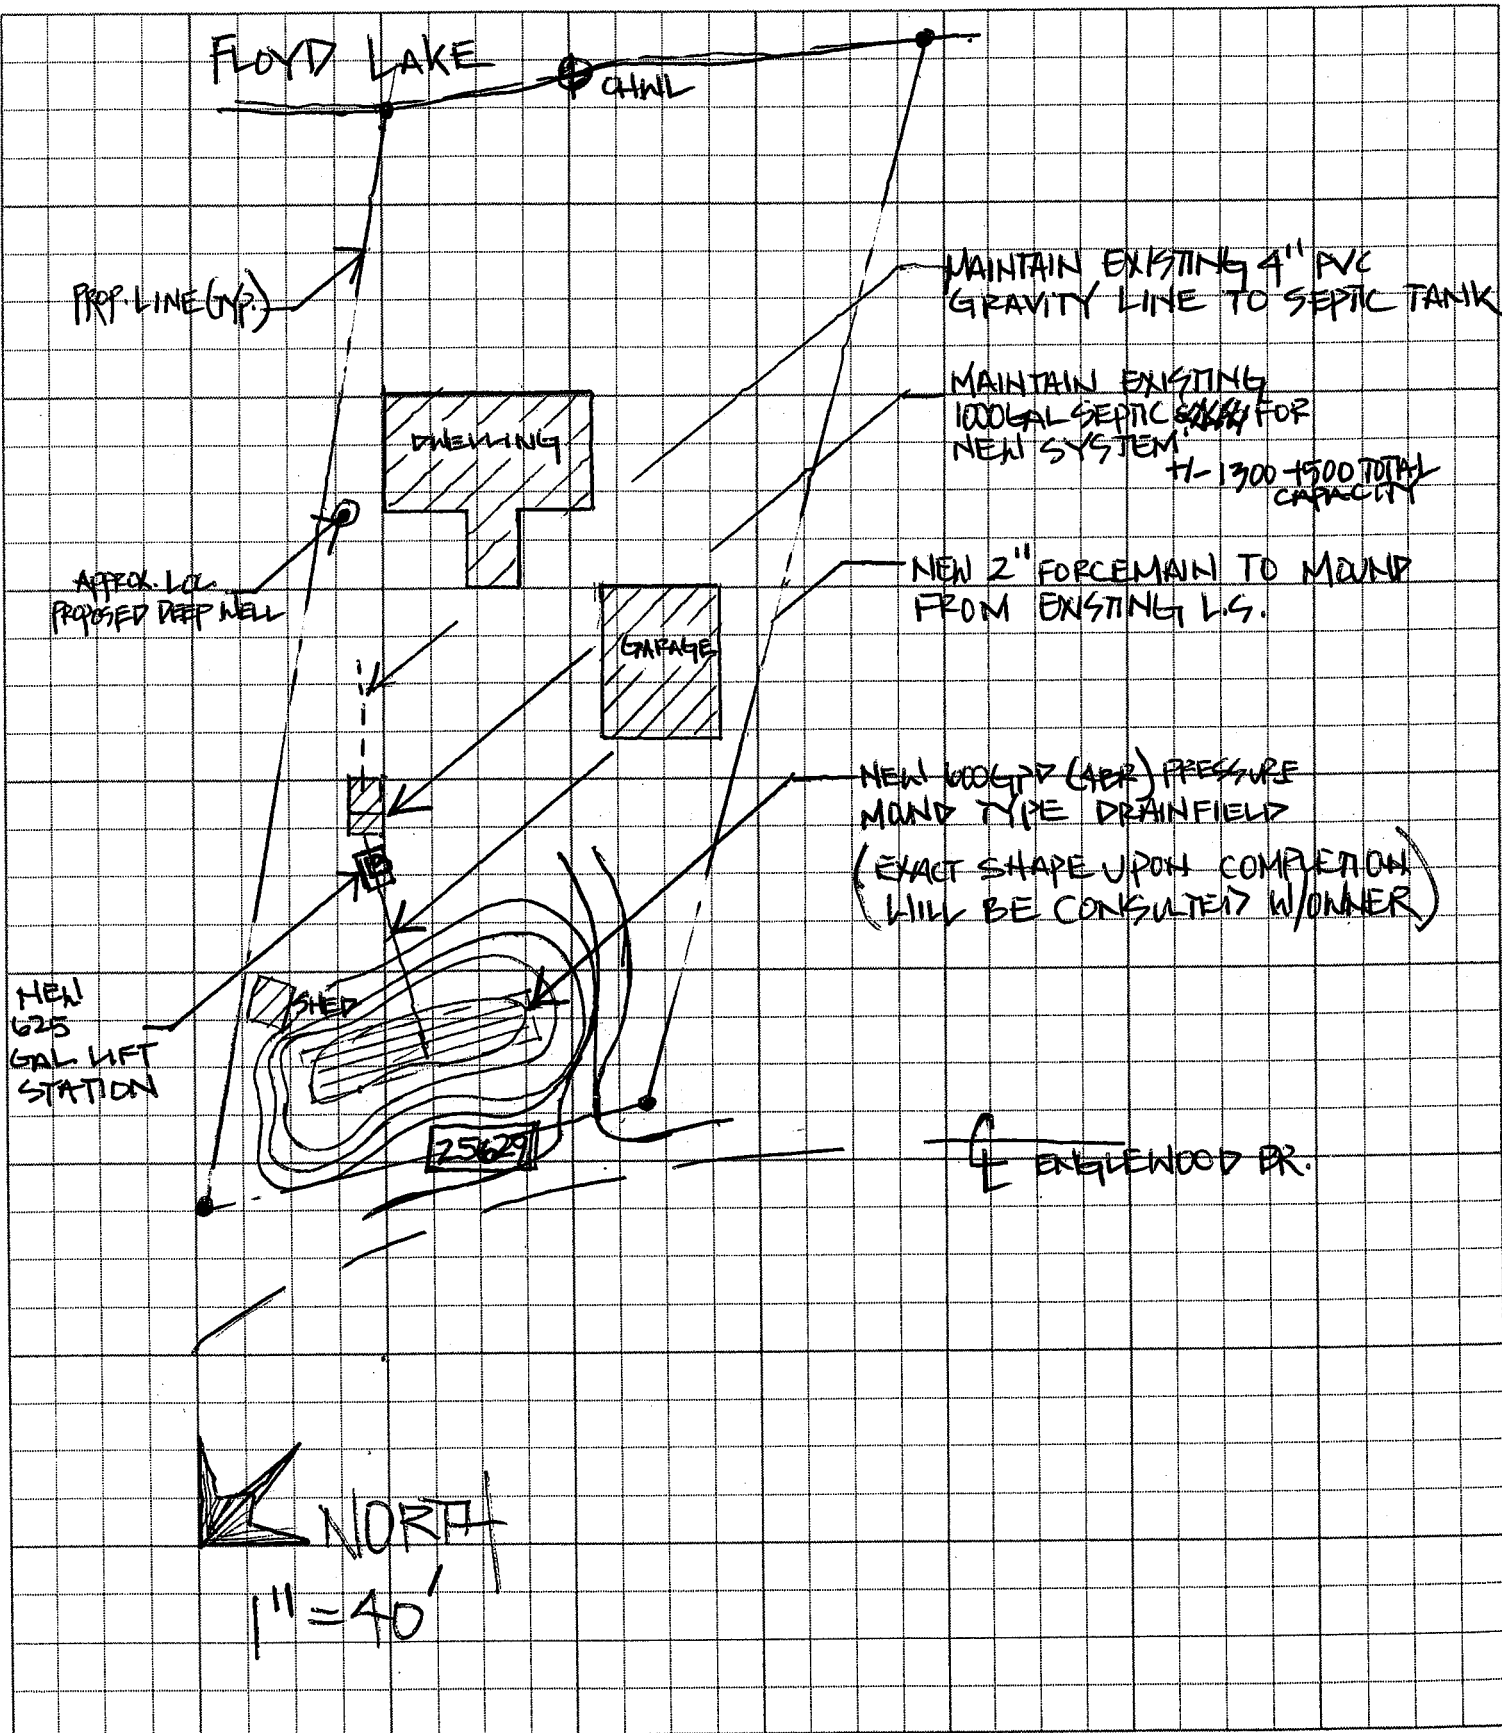 FLOYD LAKE
OHWL
PROP. LINE (TYP.)
MAINTAIN EXISTING 4" PVC
GRAVITY LINE TO SEPTIC TANK
MAINTAIN EXISTING
1000 GAL SEPTIC FOR
NEW SYSTEM
+/- 1300 +500 TOTAL
CAPACITY
DWELLING
APPROX. LOC.
PROPOSED DEEP WELL
NEW 2" FORCEMAIN TO MOUND
FROM EXISTING L.S.
GARAGE
NEW 600GPD (4BR) PRESSURE
MOUND TYPE DRAINFIELD
(EXACT SHAPE UPON COMPLETION
WILL BE CONSULTED W/OWNER)
NEW
625
GAL LIFT
STATION
SHED
25629
℄ ENGLEWOOD DR.
NORTH
1" = 40'